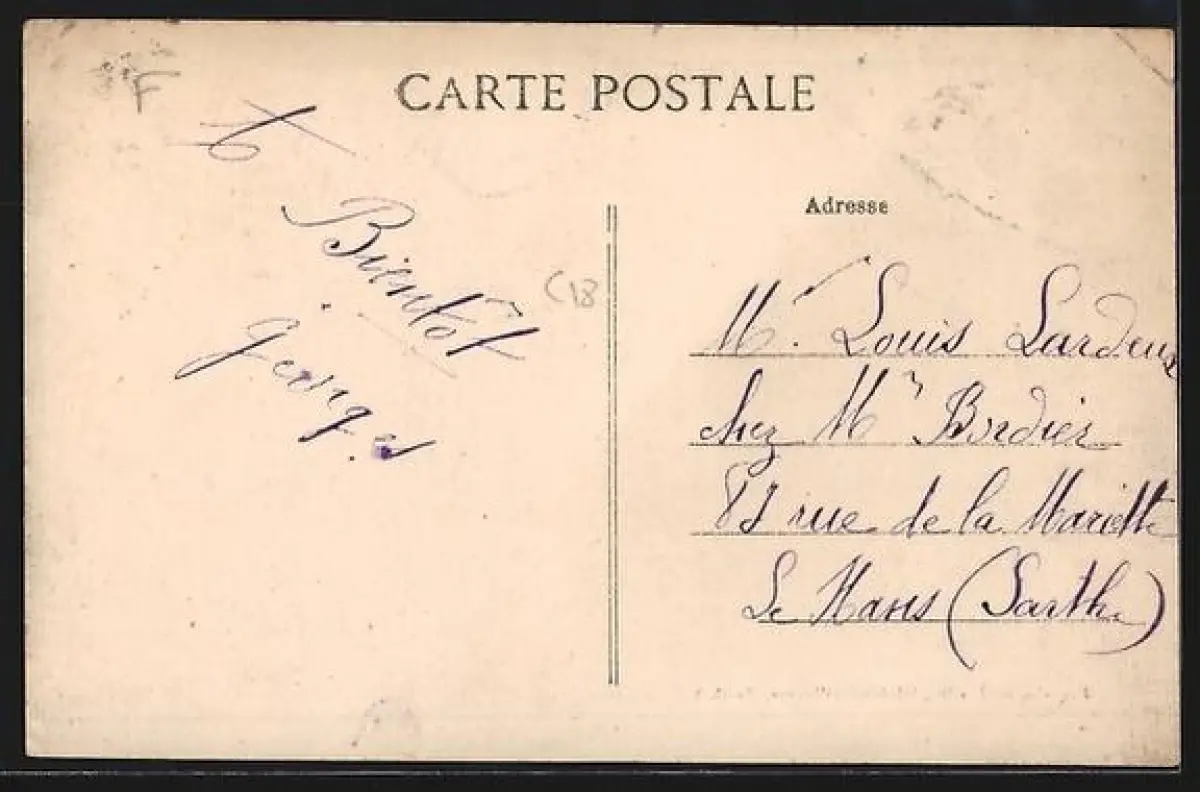 F
CARTE POSTALE
A
Bientôt
Georges
C18
Adresse
Mr Louis Lardeux
chez Mr Bordier
83 rue de la Mariette
Le Mans (Sarthe)